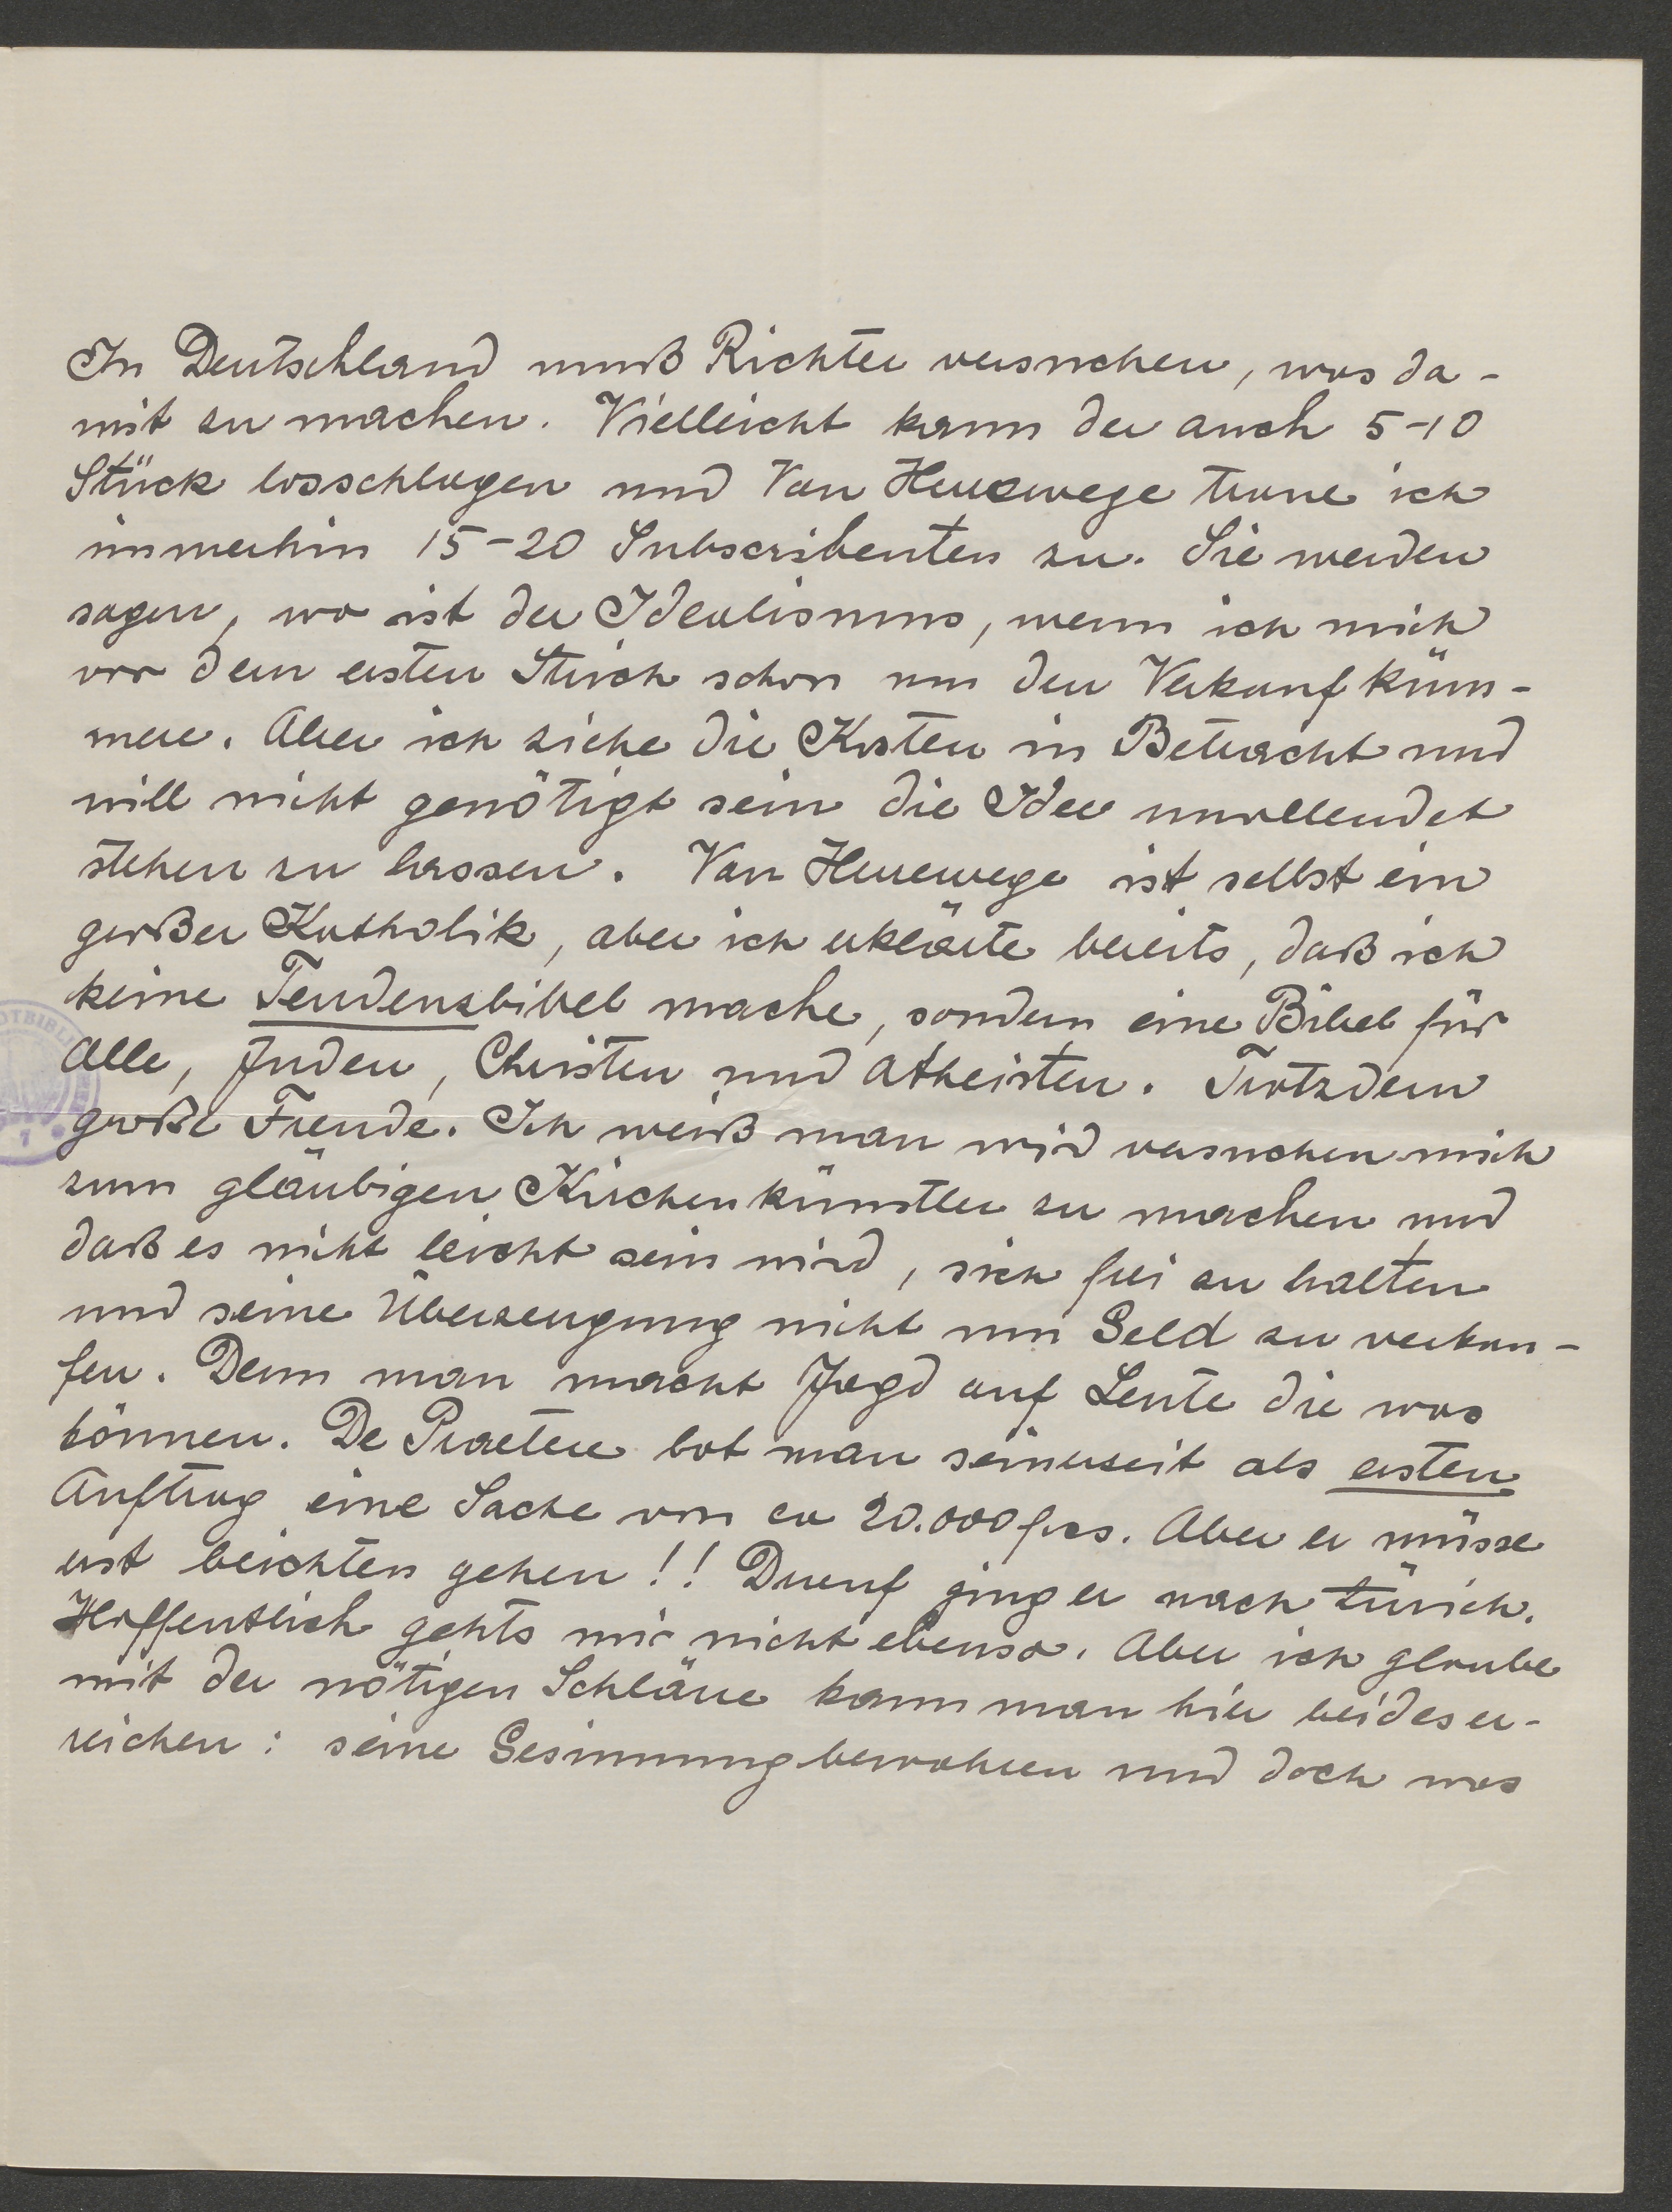 In Deutschland muß Richter versuchen, was da-
mit zu machen. Vielleicht kann der auch 5-10
Stück losschlagen und Van Herrewege traue ich
immerhin 15-20 Subscribenten zu. Sie werden
sagen, wo ist der Idealismus, wenn ich mich
vor dem ersten Strich schon um den Verkauf küm-
mere. Aber ich ziehe die Kosten in Betracht und
will nicht genötigt sein die Idee unvollendet
stehen zu lassen. Van Herrewege ist selbst ein
großer Katholik, aber ich erklärte bereits, daß ich
keine Tendenzbibel mache, sondern eine Bibel für
Alle, Juden, Christen und Atheisten. Trotzdem
große Freude. Ich weiß man wird versuchen mich
zum gläubigen Kirchenkünstler zu machen und
daß es nicht leicht sein wird, sich frei zu halten
und seine Überzeugung nicht um Geld zu verkau-
fen. Denn man macht Jagd auf Leute die was
können. De Praetere bot man seinerzeit als ersten
Auftrag eine Sache von ca 20.000 frcs. Aber er müsse
erst beichten gehen!! Drauf ging er nach Zürich.
Hoffentlich gehts mir nicht ebenso. Aber ich glaube
mit der nötigen Schläue kann man hier beides er-
reichen: seine Gesinnung bewahren und doch was